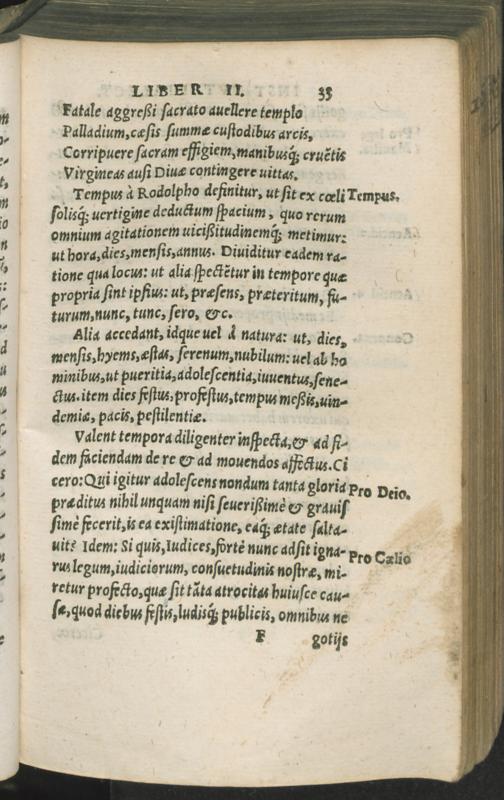 LIBER II. 33
Fatale aggreßi sacrato auellere templo
Palladium, cæsis summæ custodibus arcis,
Corripuere sacram effigiem, manibusq; cruẽtis
Virgineas ausi Diuæ contingere uittas.
Tempus à Rodolpho definitur, ut sit ex cœli Tempus.
solisq; uertigine deductum spacium, quo rerum
omnium agitationem uicißitudinemq; metimur:
ut hora, dies, mensis, annus. Diuiditur eadem ra-
tione qua locus: ut alia spectẽtur in tempore quæ
propria sint ipsius: ut, præsens, præteritum, fu-
turum, nunc, tunc, sero, &c.
Alia accedant, idque uel à natura: ut, dies,
mensis, hyems, æstas, serenum, nubilum: uel ab ho
minibus, ut pueritia, adolescentia, iuuentus, sene-
ctus. item dies festus, profestus, tempus meßis, uin-
demiæ, pacis, pestilentiæ.
Valent tempora diligenter inspecta, & ad fi-
dem faciendam de re & ad mouendos affectus. Ci
cero: Qui igitur adolescens nondum tanta gloria Pro Deio.
præditus nihil unquam nisi seuerißimè & grauis
simè fecerit, is ea existimatione, eaq; ætate salta-
uit? Idem: Si quis, Iudices, fortè nunc adsit igna- Pro Cælio
rus legum, iudiciorum, consuetudinis nostræ, mi-
retur profecto, quæ sit tãta atrocitas huiusce cau-
sæ, quod diebus festis, ludisq; publicis, omnibus ne
F gotijs